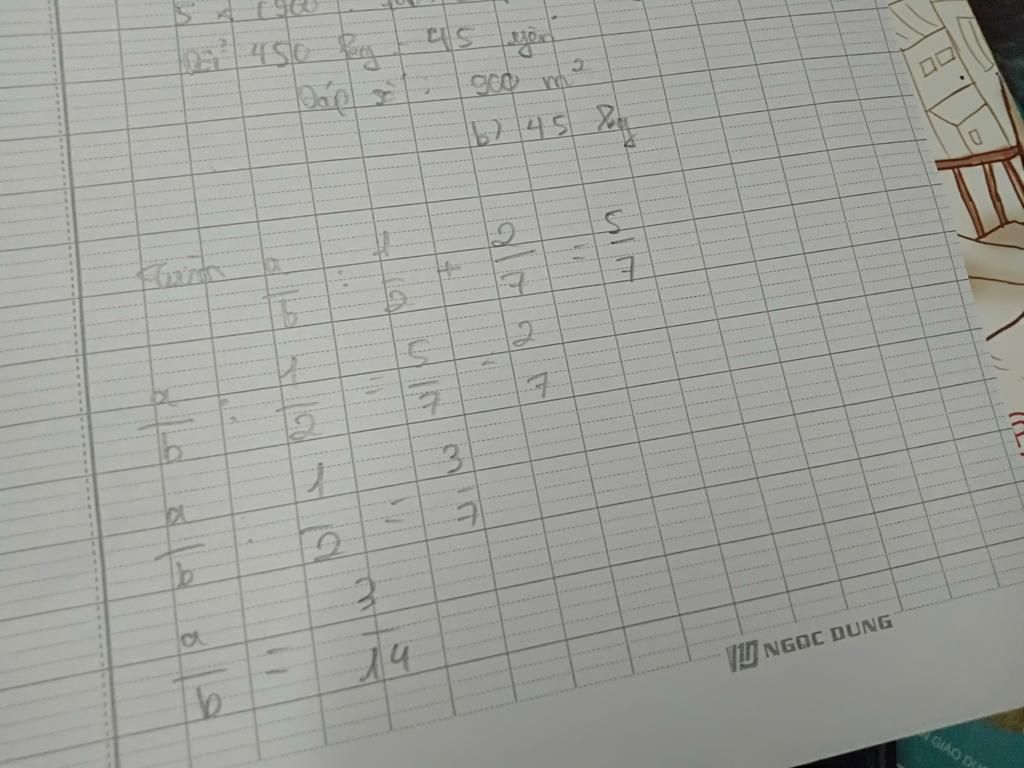 5 x (900 :
Đổi 450 kg = 45 yến
Đáp số : 900 m²
b) 45 kg
a/b : 1/2 + 2/7 = 5/7
a/b : 1/2 = 5/7 - 2/7
a/b : 1/2 = 3/7
a/b = 3/14
NGOC DUNG